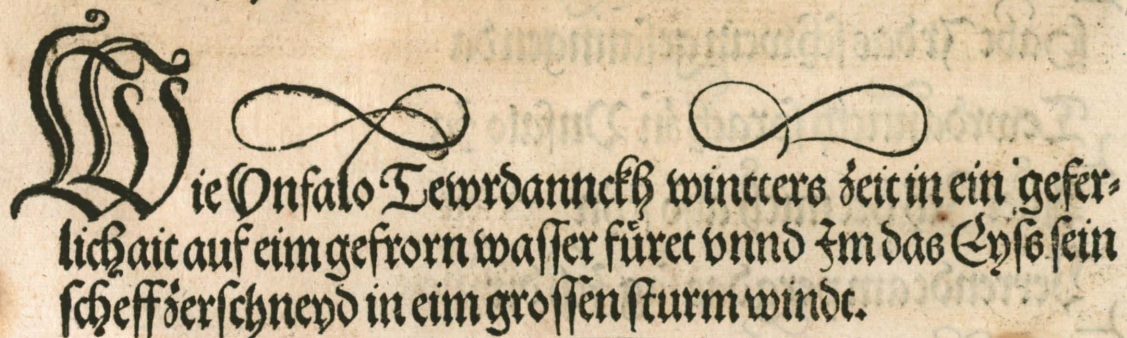 Wie Vnfalo Tewrdannckh wintters zeit in ein gefer-
lichait auf eim gefrorn wasser füret vnnd Im das Eyss sein
scheff zerschneyd in eim grossen sturm windt.